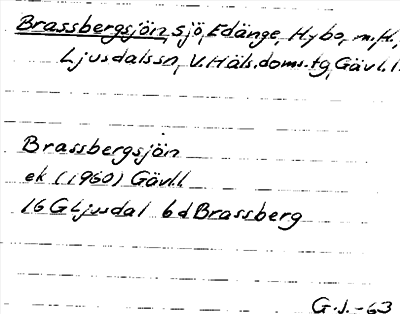 Brassbergsjön, sjö, Edänge, Hybo, m.fl.,
Ljusdalssn, V.Häls.doms.tg, Gävl.l.
Brassbergsjön
ek (1960) Gävl.l.
16 G Ljusdal 6d Brassberg
G.J.-63